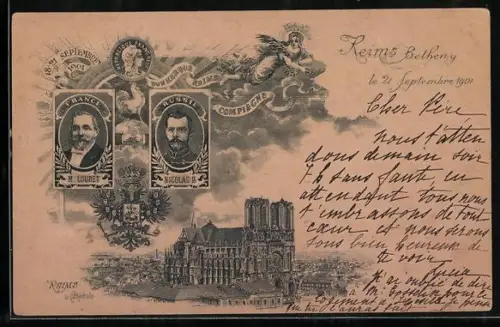 18-21 SEPTEMBRE
1901
DUNKERQUE
REIMS
COMPIÈGNE
FRANCE
M. LOUBET
RUSSIE
NICOLAS II.
REIMS
La Cathédrale
Reims Betheny
le 21 Septembre 1901
Cher Père
nous t'atten
dons demain soir
à 6 sans faute en
attendant tous nous
t'embrassons de tout
cœur et nous serons
tous bien heureux de
te voir
J'ai oublié de dire
à M.